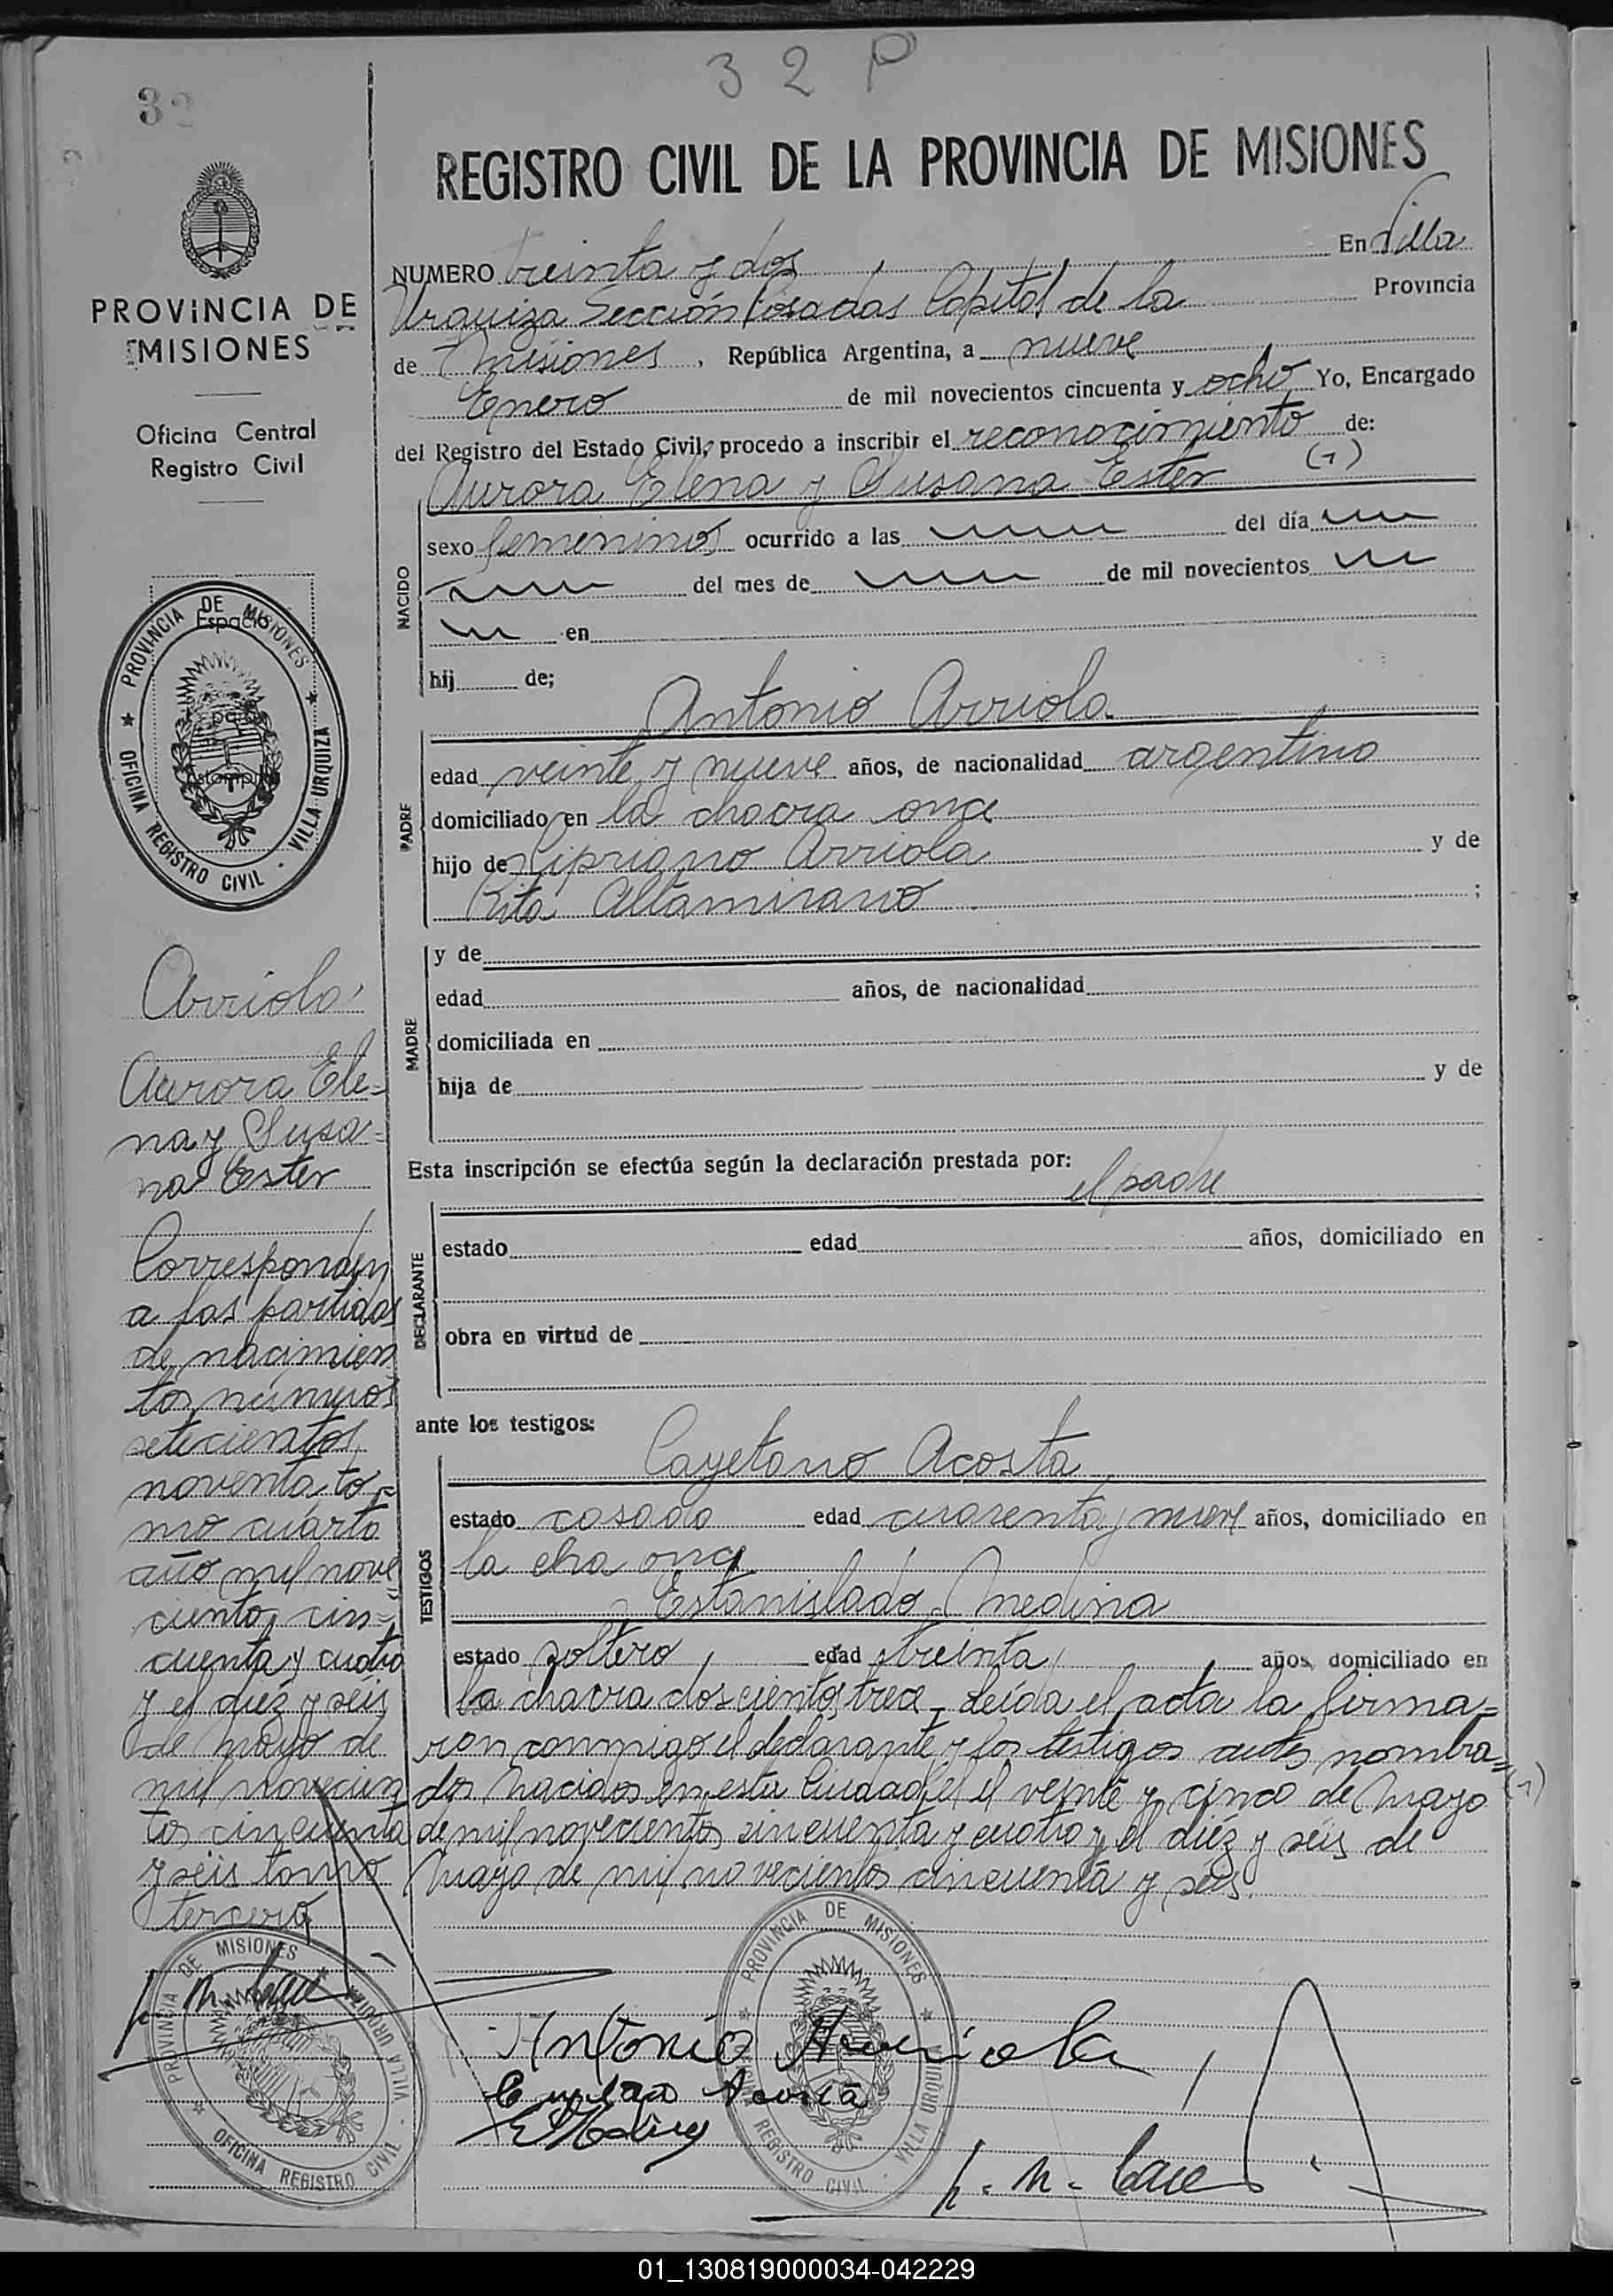 32 P
32
REGISTRO CIVIL DE LA PROVINCIA DE MISIONES
PROVINCIA DE
MISIONES
Oficina Central
Registro Civil
NUMERO treinta y dos En Villa
Urquiza Sección Posadas Capital de la Provincia
de Misiones, República Argentina, a nueve
Enero de mil novecientos cincuenta y ocho Yo, Encargado
del Registro del Estado Civil, procedo a inscribir el reconocimiento de:
Aurora Elena y Susana Ester (1)
NACIDO
sexo femeninos ocurrido a las del día
del mes de de mil novecientos
en
hij de;
PROVINCIA DE MISIONES
OFICINA REGISTRO CIVIL - VILLA URQUIZA
Espacio
para
Estampilla
PADRE
Antonio Arriola
edad veinte y nueve años, de nacionalidad argentino
domiciliado en la chacra once
hijo de Cipriano Arriola y de
Rita Altamirano ;
MADRE
y de
edad años, de nacionalidad
domiciliada en
hija de y de
Arriola
Aurora Ele=
na y Susa=
na Ester
Corresponden
a las partidas
de nacimien
tos números
setecientos
noventa to=
mo cuarto
año mil nove
cientos cin=
cuenta y cuatro
y el diez y seis
de Mayo de
mil novecien
tos cincuenta
y seis tomo
tercero
Esta inscripción se efectúa según la declaración prestada por:
el padre
DECLARANTE
estado edad años, domiciliado en
obra en virtud de
ante los testigos:
TESTIGOS
Cayetano Acosta
estado casado edad cuarenta y nueve años, domiciliado en
la cha once
Estanislado Medina
estado soltero, edad treinta, años, domiciliado en
la chacra doscientos trece - Leída el acta la firma=
ron conmigo el declarante y los testigos antes nombra=
dos Nacidos en esta Ciudad el el veinte y cinco de Mayo (1)
de mil novecientos cincuenta y cuatro y el diez y seis de
Mayo de mil novecientos cincuenta y seis.
PROVINCIA DE MISIONES
OFICINA REGISTRO CIVIL - VILLA URQUIZA
PROVINCIA DE MISIONES
OFICINA REGISTRO CIVIL - VILLA URQUIZA
Antonio Arriola
01_130819000034-042229